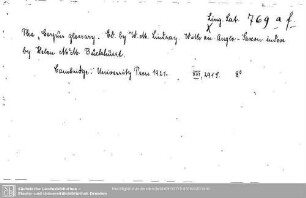 Ling. Lat. 769 a f.
The Corpus glossary. Ed. by W. M. Lindsay With an Anglo-Saxon index
by Helen McM. Buckhurst.
Cambridge: University Press 1921. XVI, 291 S. 8°
Sächsische Landesbibliothek -
Staats- und Universitätsbibliothek Dresden